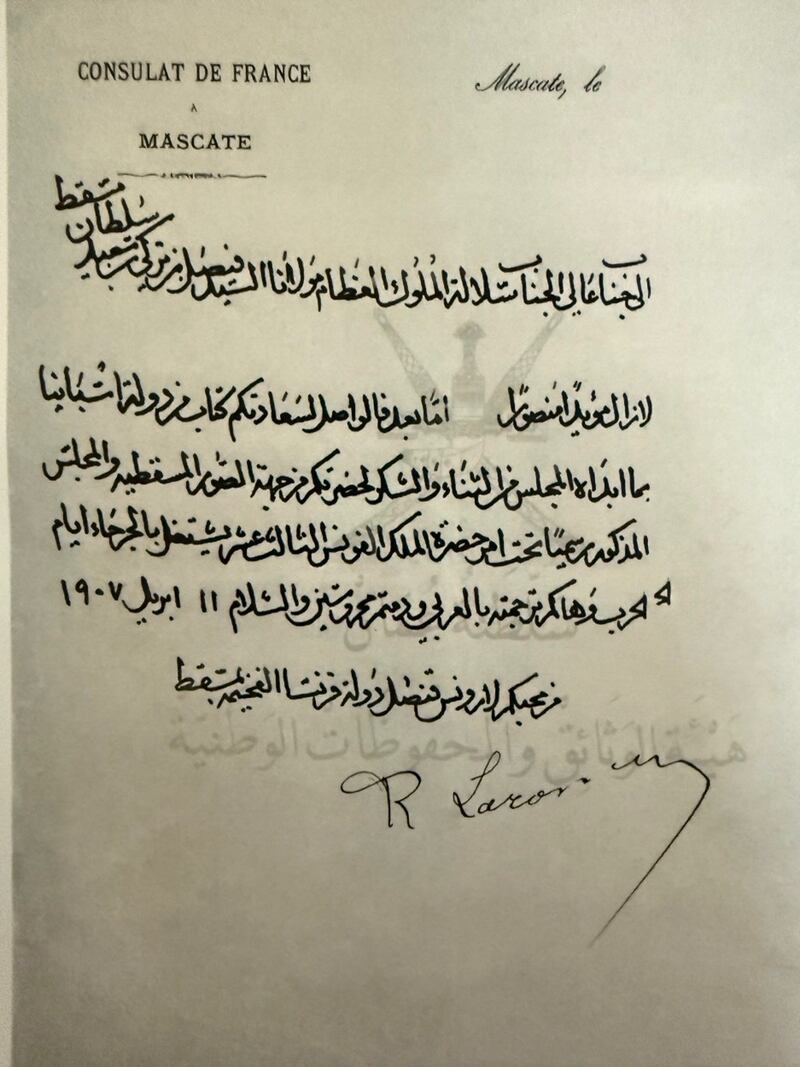 CONSULAT DE FRANCE
À
MASCATE
Mascate, le
الى جناب عالي الجناب سلالة الملوك العظام مولانا السيد فيصل بن تركي بن سعيد
سلطان
مسقط
لازال مويدًا منصورًا امّا بعد فالواصل لسعادتكم كتاب من دولة اسبانيا
بما ابداه المجلس من الثناء والشكر لحضرتكم من جهة الصور المسقطية والمجلس
المذكور رسميًا تحت امر حضرة الملك الفونس الثالث عشر يشتغل بالجرحاء ايام
الحرب وهاكم ترجمته بالعربي ودمتم محروسين والسلام ١١ ابريل ١٩٠٧
من محبكم لارونس قنصل دولة فرنسا الفخيمة بمسقط
R Laron
هيئة الوثائق والمحفوظات الوطنية